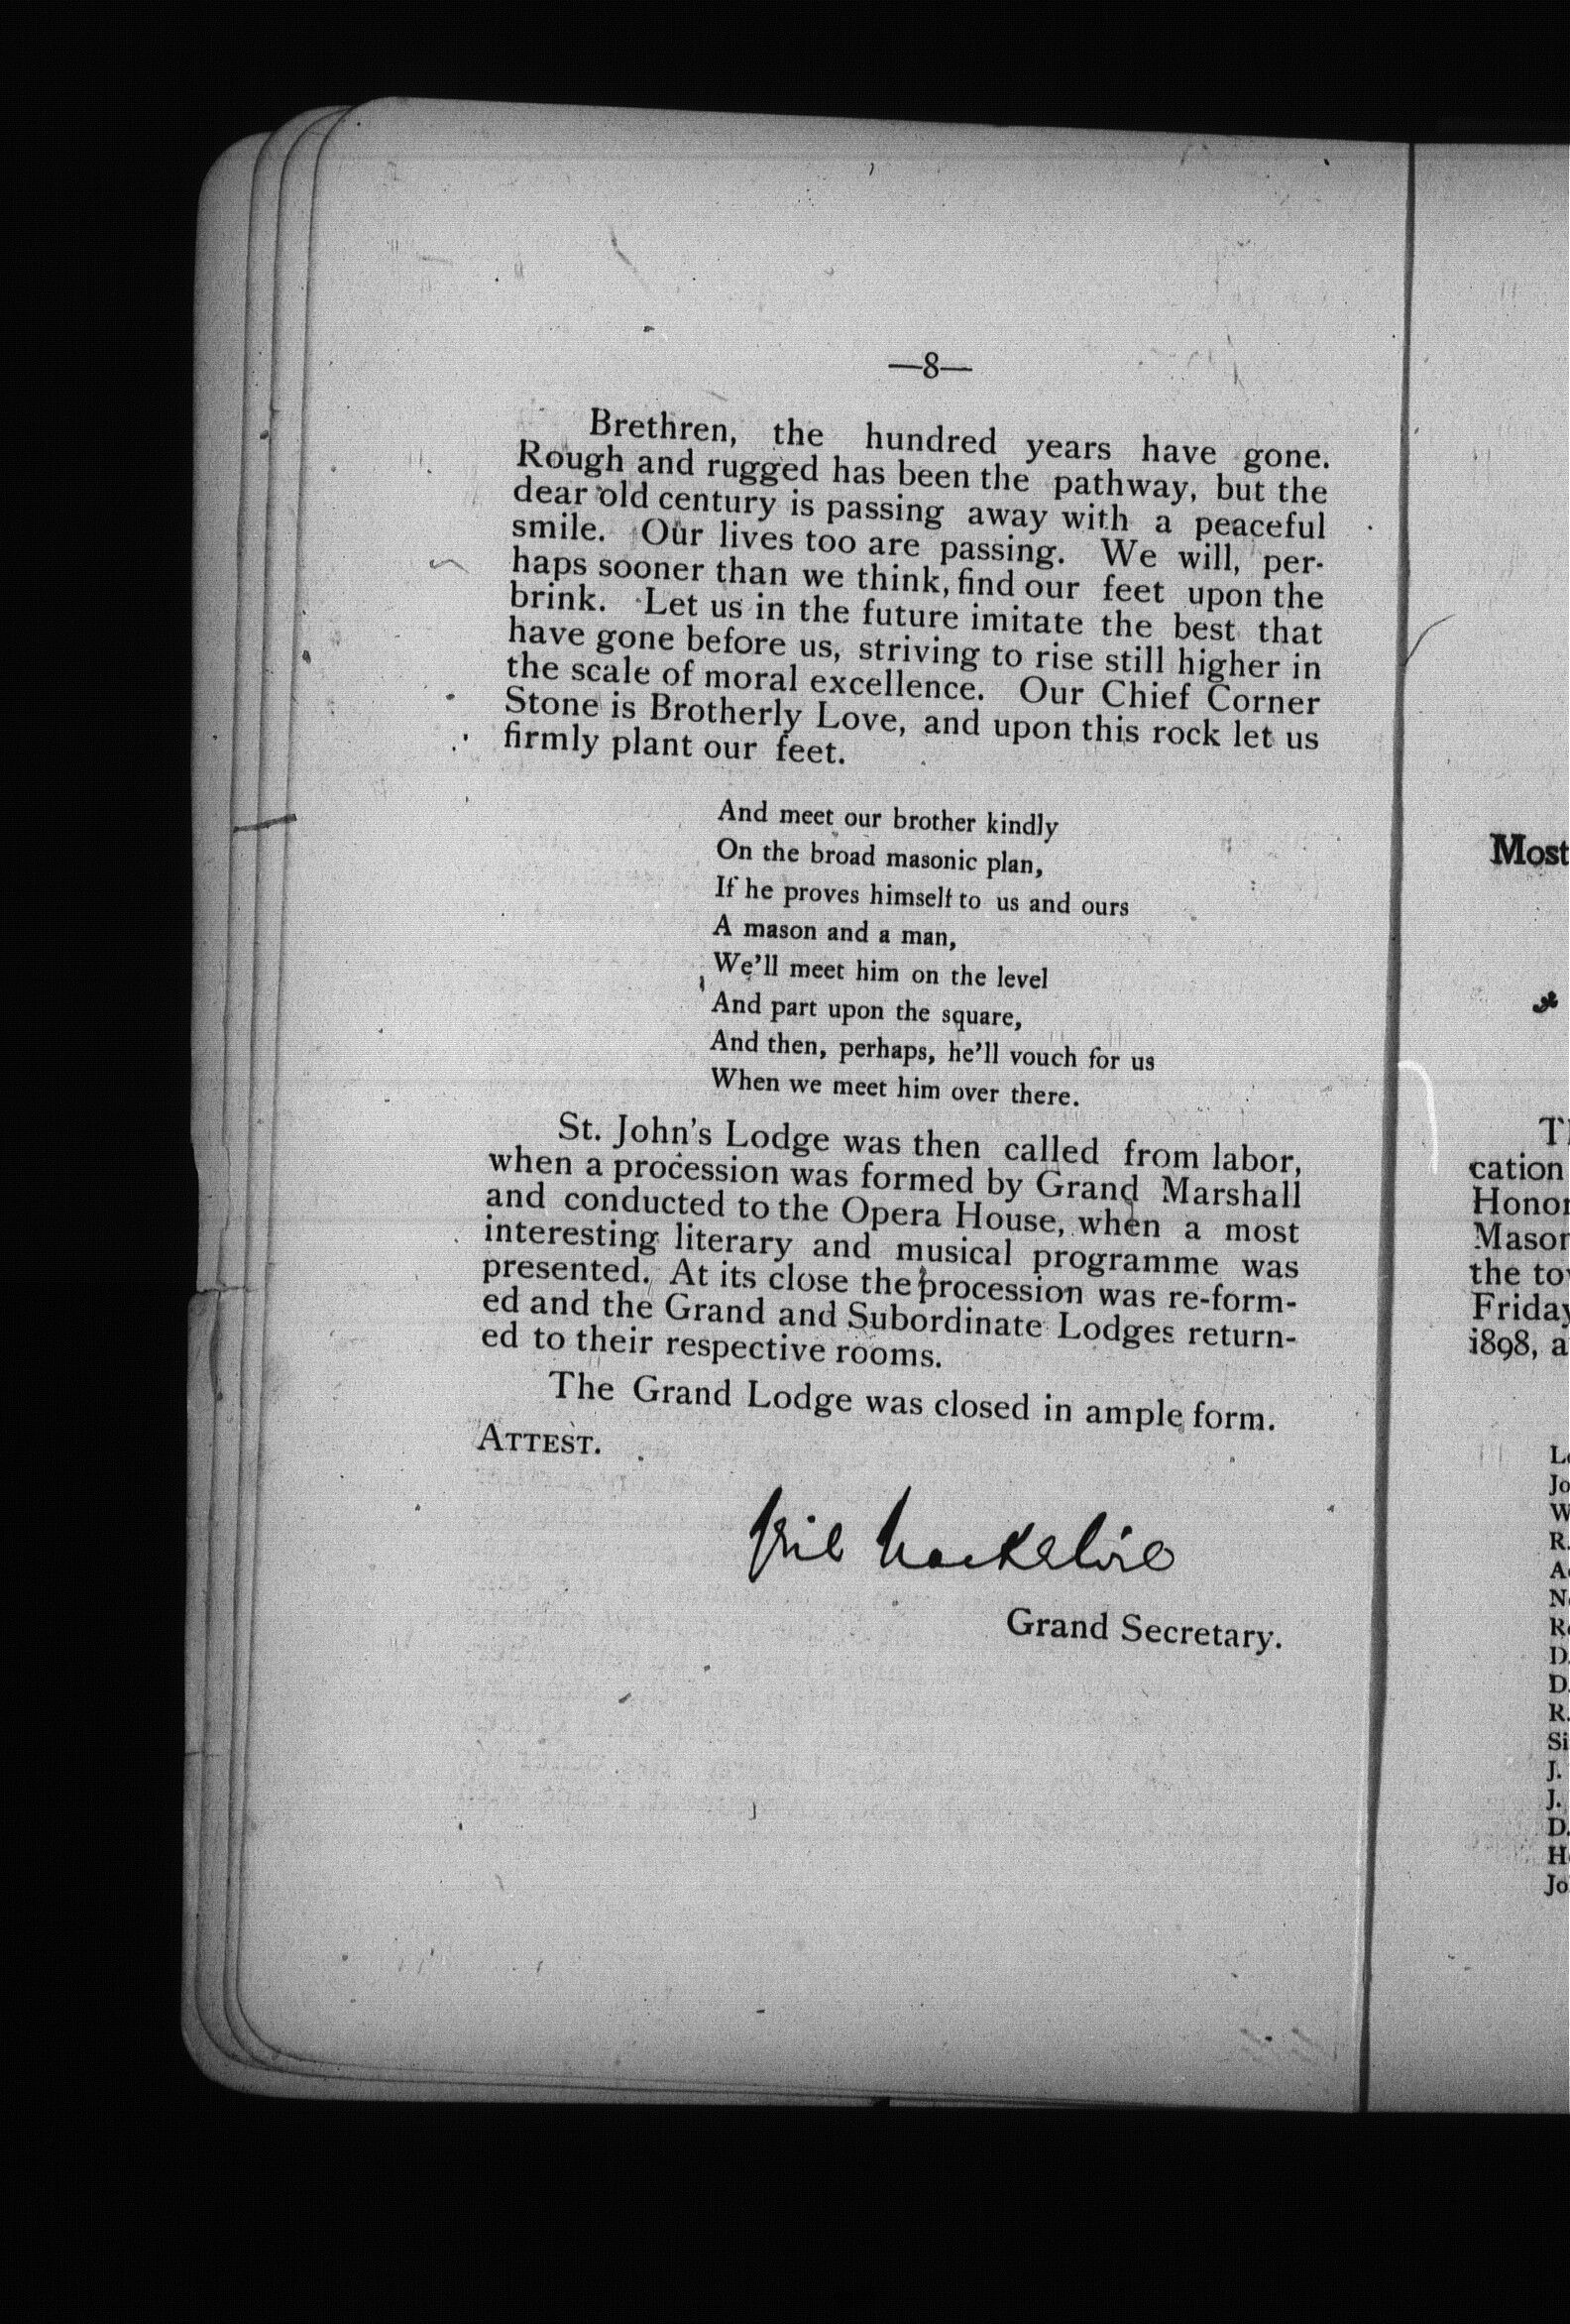 —8—
Brethren, the hundred years have gone.
Rough and rugged has been the pathway, but the
dear old century is passing away with a peaceful
smile. Our lives too are passing. We will, per-
haps sooner than we think, find our feet upon the
brink. Let us in the future imitate the best that
have gone before us, striving to rise still higher in
the scale of moral excellence. Our Chief Corner
Stone is Brotherly Love, and upon this rock let us
firmly plant our feet.
And meet our brother kindly
On the broad masonic plan,
If he proves himself to us and ours
A mason and a man,
We'll meet him on the level
And part upon the square,
And then, perhaps, he'll vouch for us
When we meet him over there.
St. John's Lodge was then called from labor,
when a procession was formed by Grand Marshall
and conducted to the Opera House, when a most
interesting literary and musical programme was
presented. At its close the procession was re-form-
ed and the Grand and Subordinate Lodges return-
ed to their respective rooms.
The Grand Lodge was closed in ample form.
ATTEST.
Grand Secretary.
Most
cation
Honor
Mason
the to
Friday
1898, a